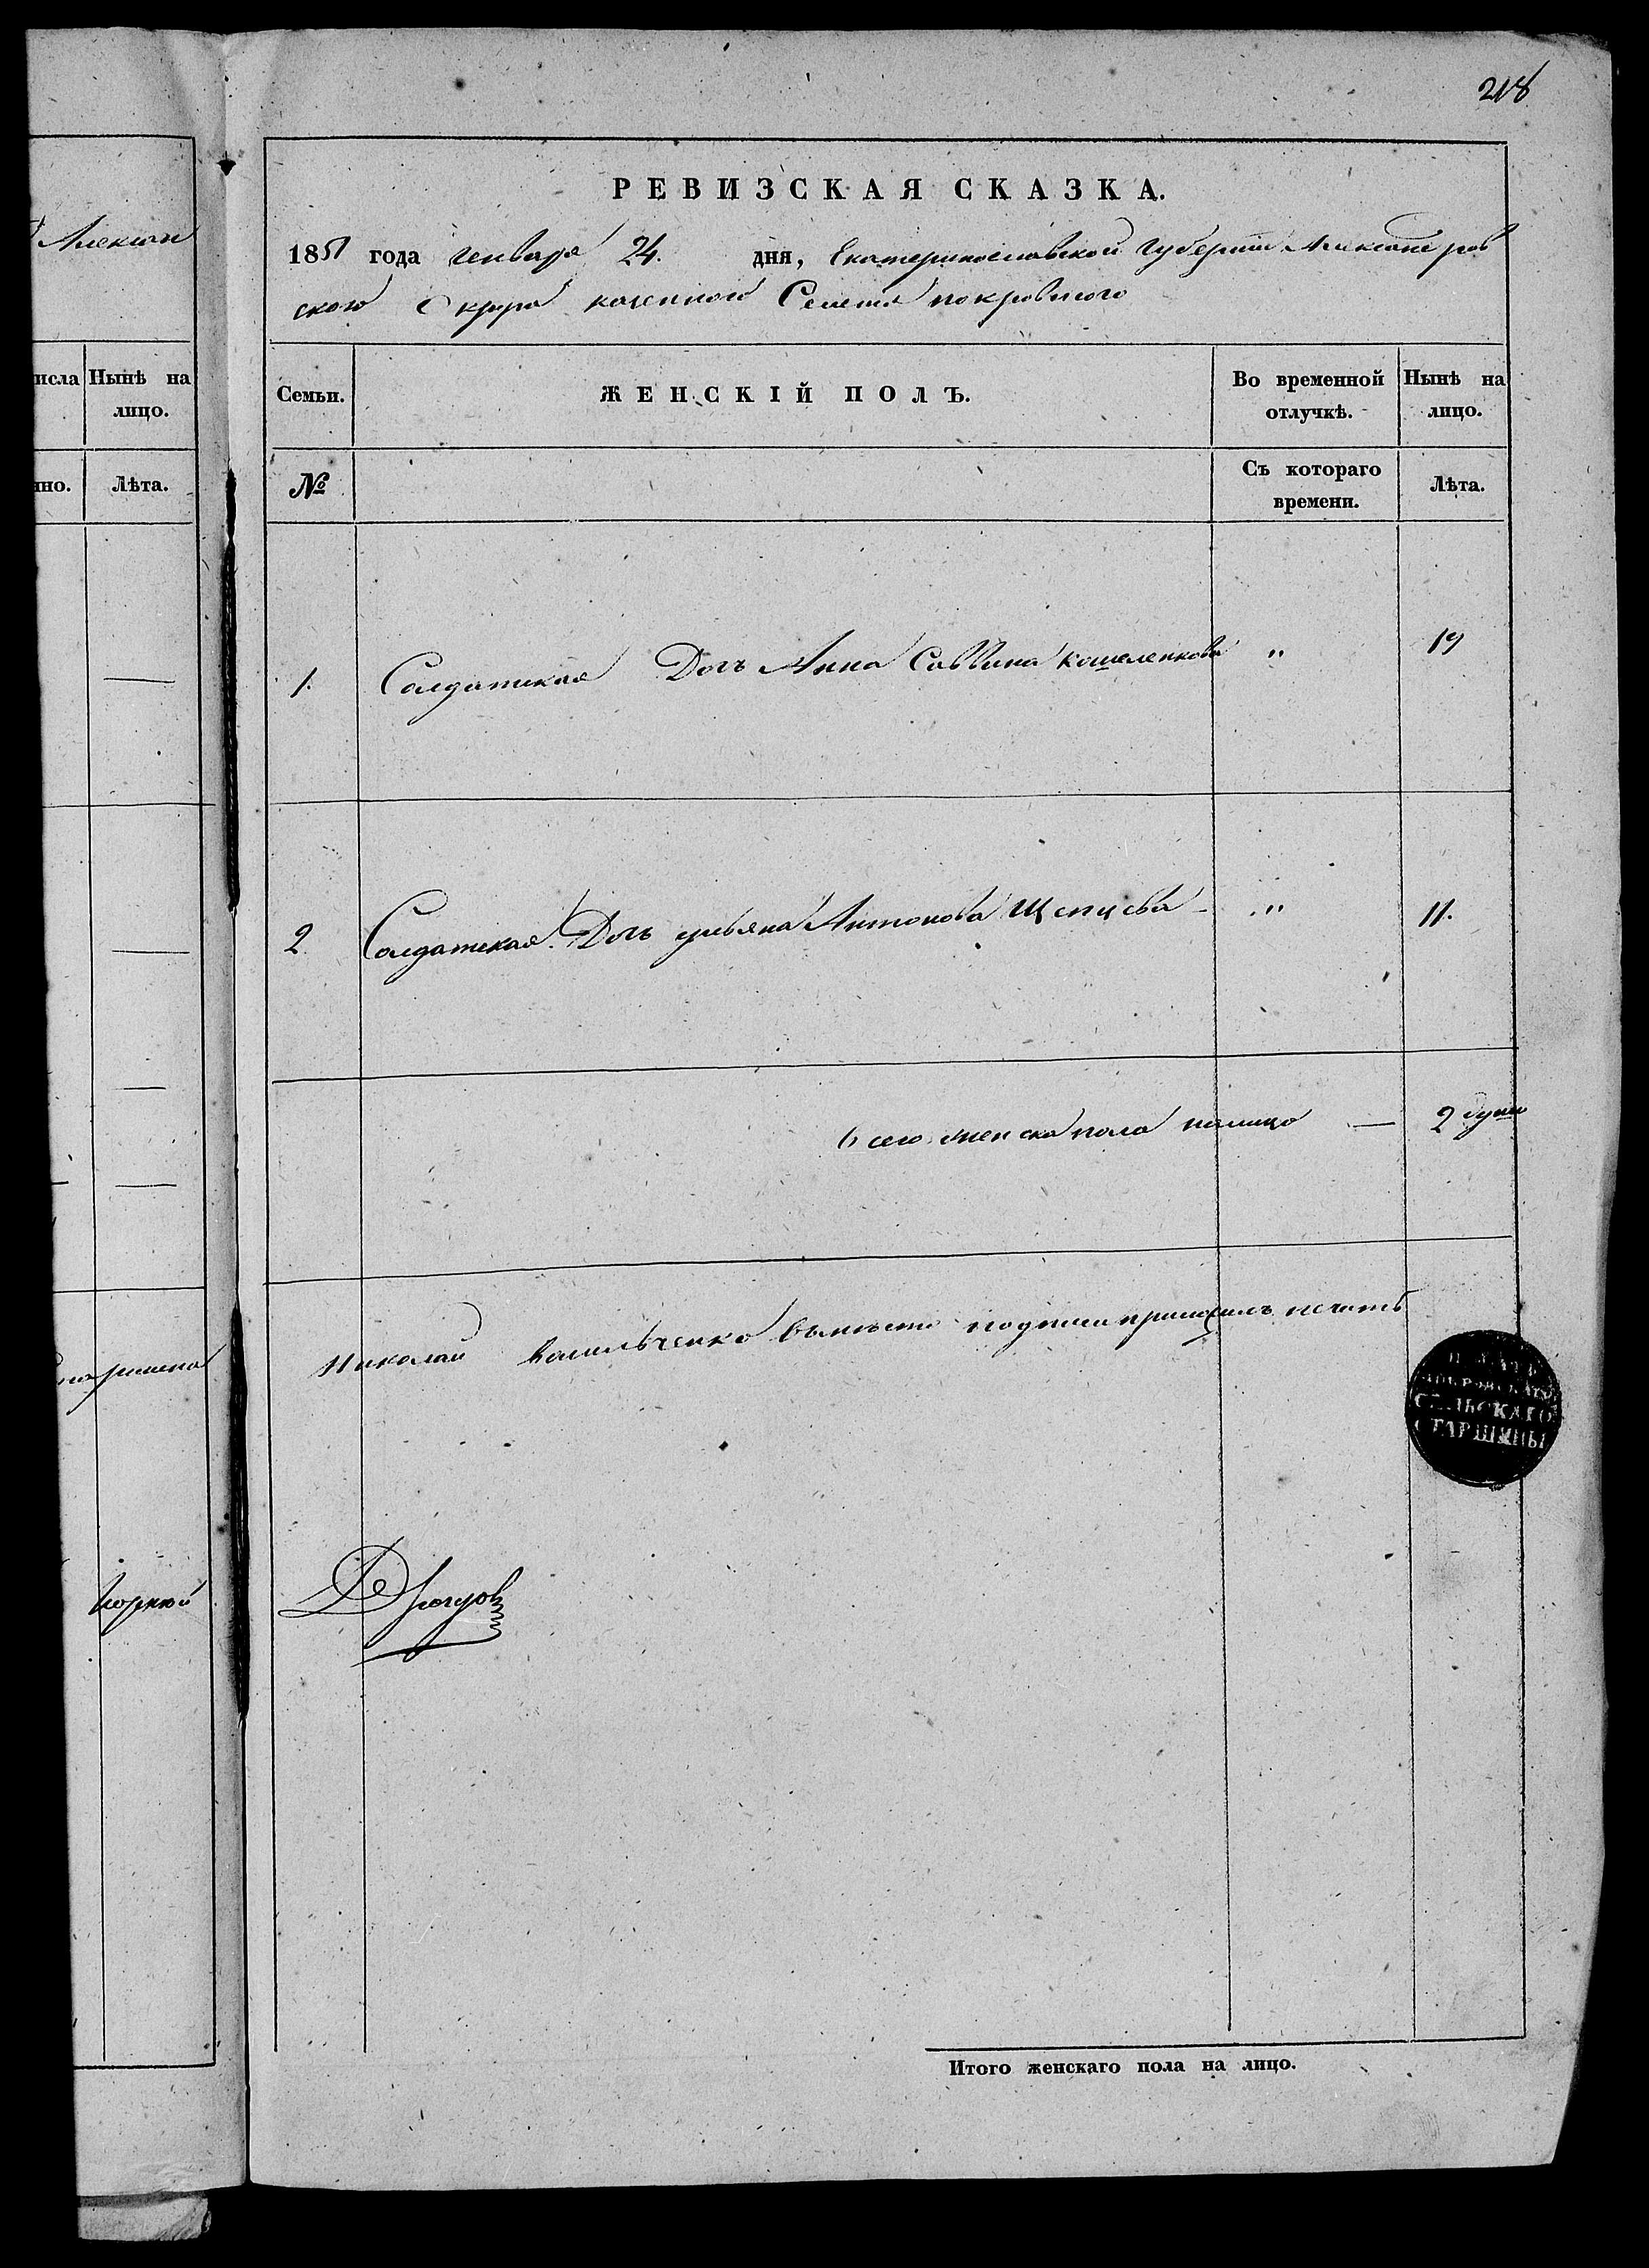 218
Алексан
исла Нынѣ на
лицо.
нно. Лѣта.
Корнюй
РЕВИЗСКАЯ СКАЗКА.
1851 года генваря 24. дня, Екатеринославской губерніи Александров
ского Округа казенного Селенія покровского
Семьи. ЖЕНСКІЙ ПОЛЪ. Во временной отлучкѣ. Нынѣ на лицо.
№ Съ котораго времени. Лѣта.
1. Солдатская Дочь Анна Саввина Кошеленкова " 19
2 Солдатская Дочь ульяна Антонова - " 11.
всего женска пола налицо — 2 души
Николай Васильченко вместо подписи приложилъ печать
ПЕЧАТЬ
ПОКРОВСКАГО
СЕЛЬСКАГО
СТАРШИНЫ
Итого женскаго пола на лицо.